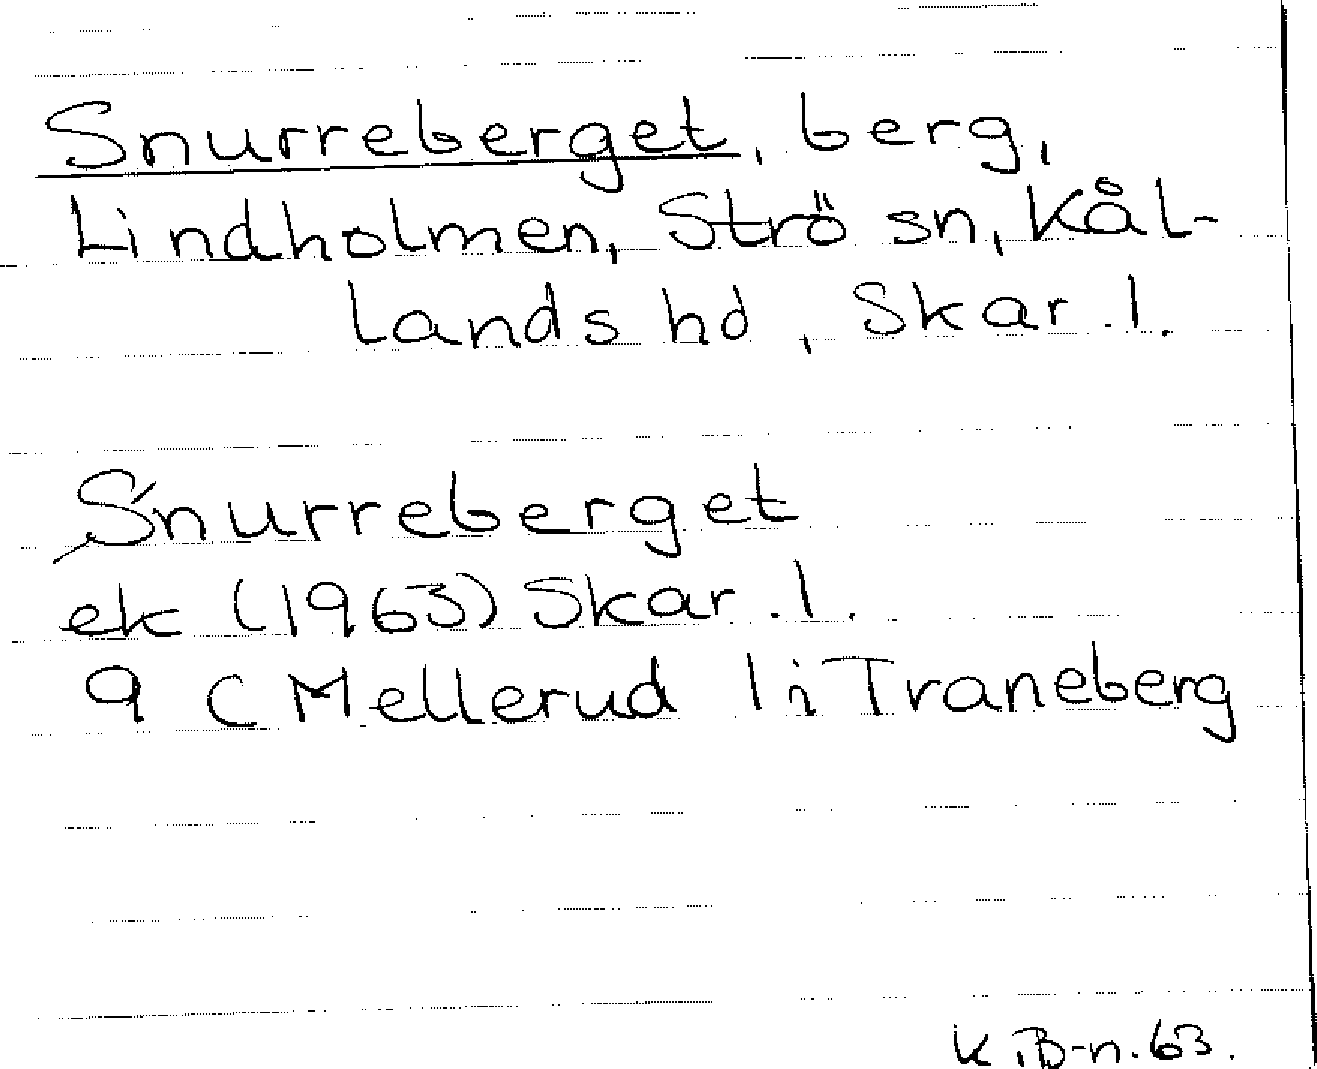 Snurreberget, berg,
Lindholmen, Strö sn, Kål-
lands hd, Skar. l.
Snurreberget
ek (1963) Skar. l.
9 C Mellerud l i Traneberg
K.B-n. 63.